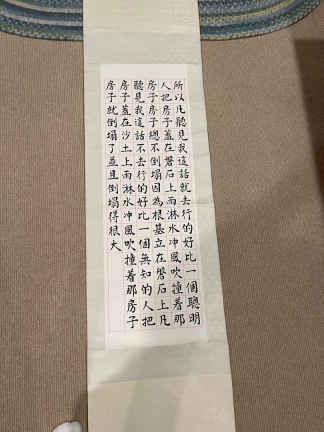 所以凡聽見我這話就去行的好比一個聰明
人把房子蓋在磐石上雨淋水冲風吹撞着那
房子房子總不倒塌因為根基立在磐石上凡
聽見我這話不去行的好比一個無知的人把
房子蓋在沙土上雨淋水冲風吹撞着那房子
房子就倒塌了並且倒塌得很大